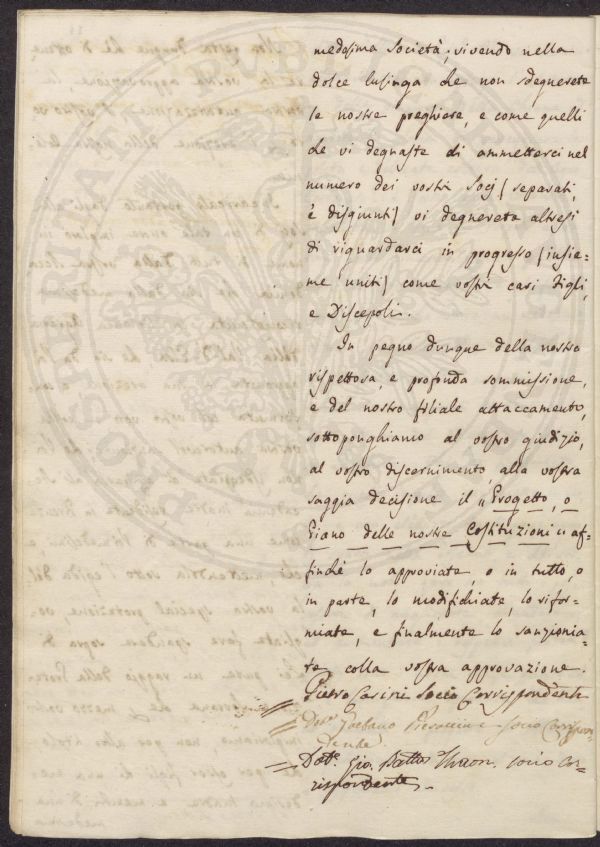 medesima Società; vivendo nella
dolce lusinga che non sdegnerete
le nostre preghiere, e come quelli
che vi degnaste di ammetterci nel
numero dei vostri Socj (separati,
e disgiunti) vi degnerete altresì
di riguardarci in progresso (insie=
me uniti) come vostri cari Figli,
e Discepoli.
In pegno dunque della nostra
rispettosa, e profonda sommissione,
e del nostro filiale attaccamento,
sottoponghiamo al vostro giudizio,
al vostro discernimento, alla vostra
saggia decisione il "Progetto, o
Piano delle nostre Costituzioni" af=
finchè lo approviate, o in tutto, o
in parte, lo modifichiate, lo rifor=
miate, e finalmente lo sanzionia=
te colla vostra approvazione.
Pietro Casini Socio Corrispondente
Gaetano Socio Corrispon=
dente
Dott. Gio. Batta Socio Cor=
rispondente
PUBLICAE PROSPERITATI